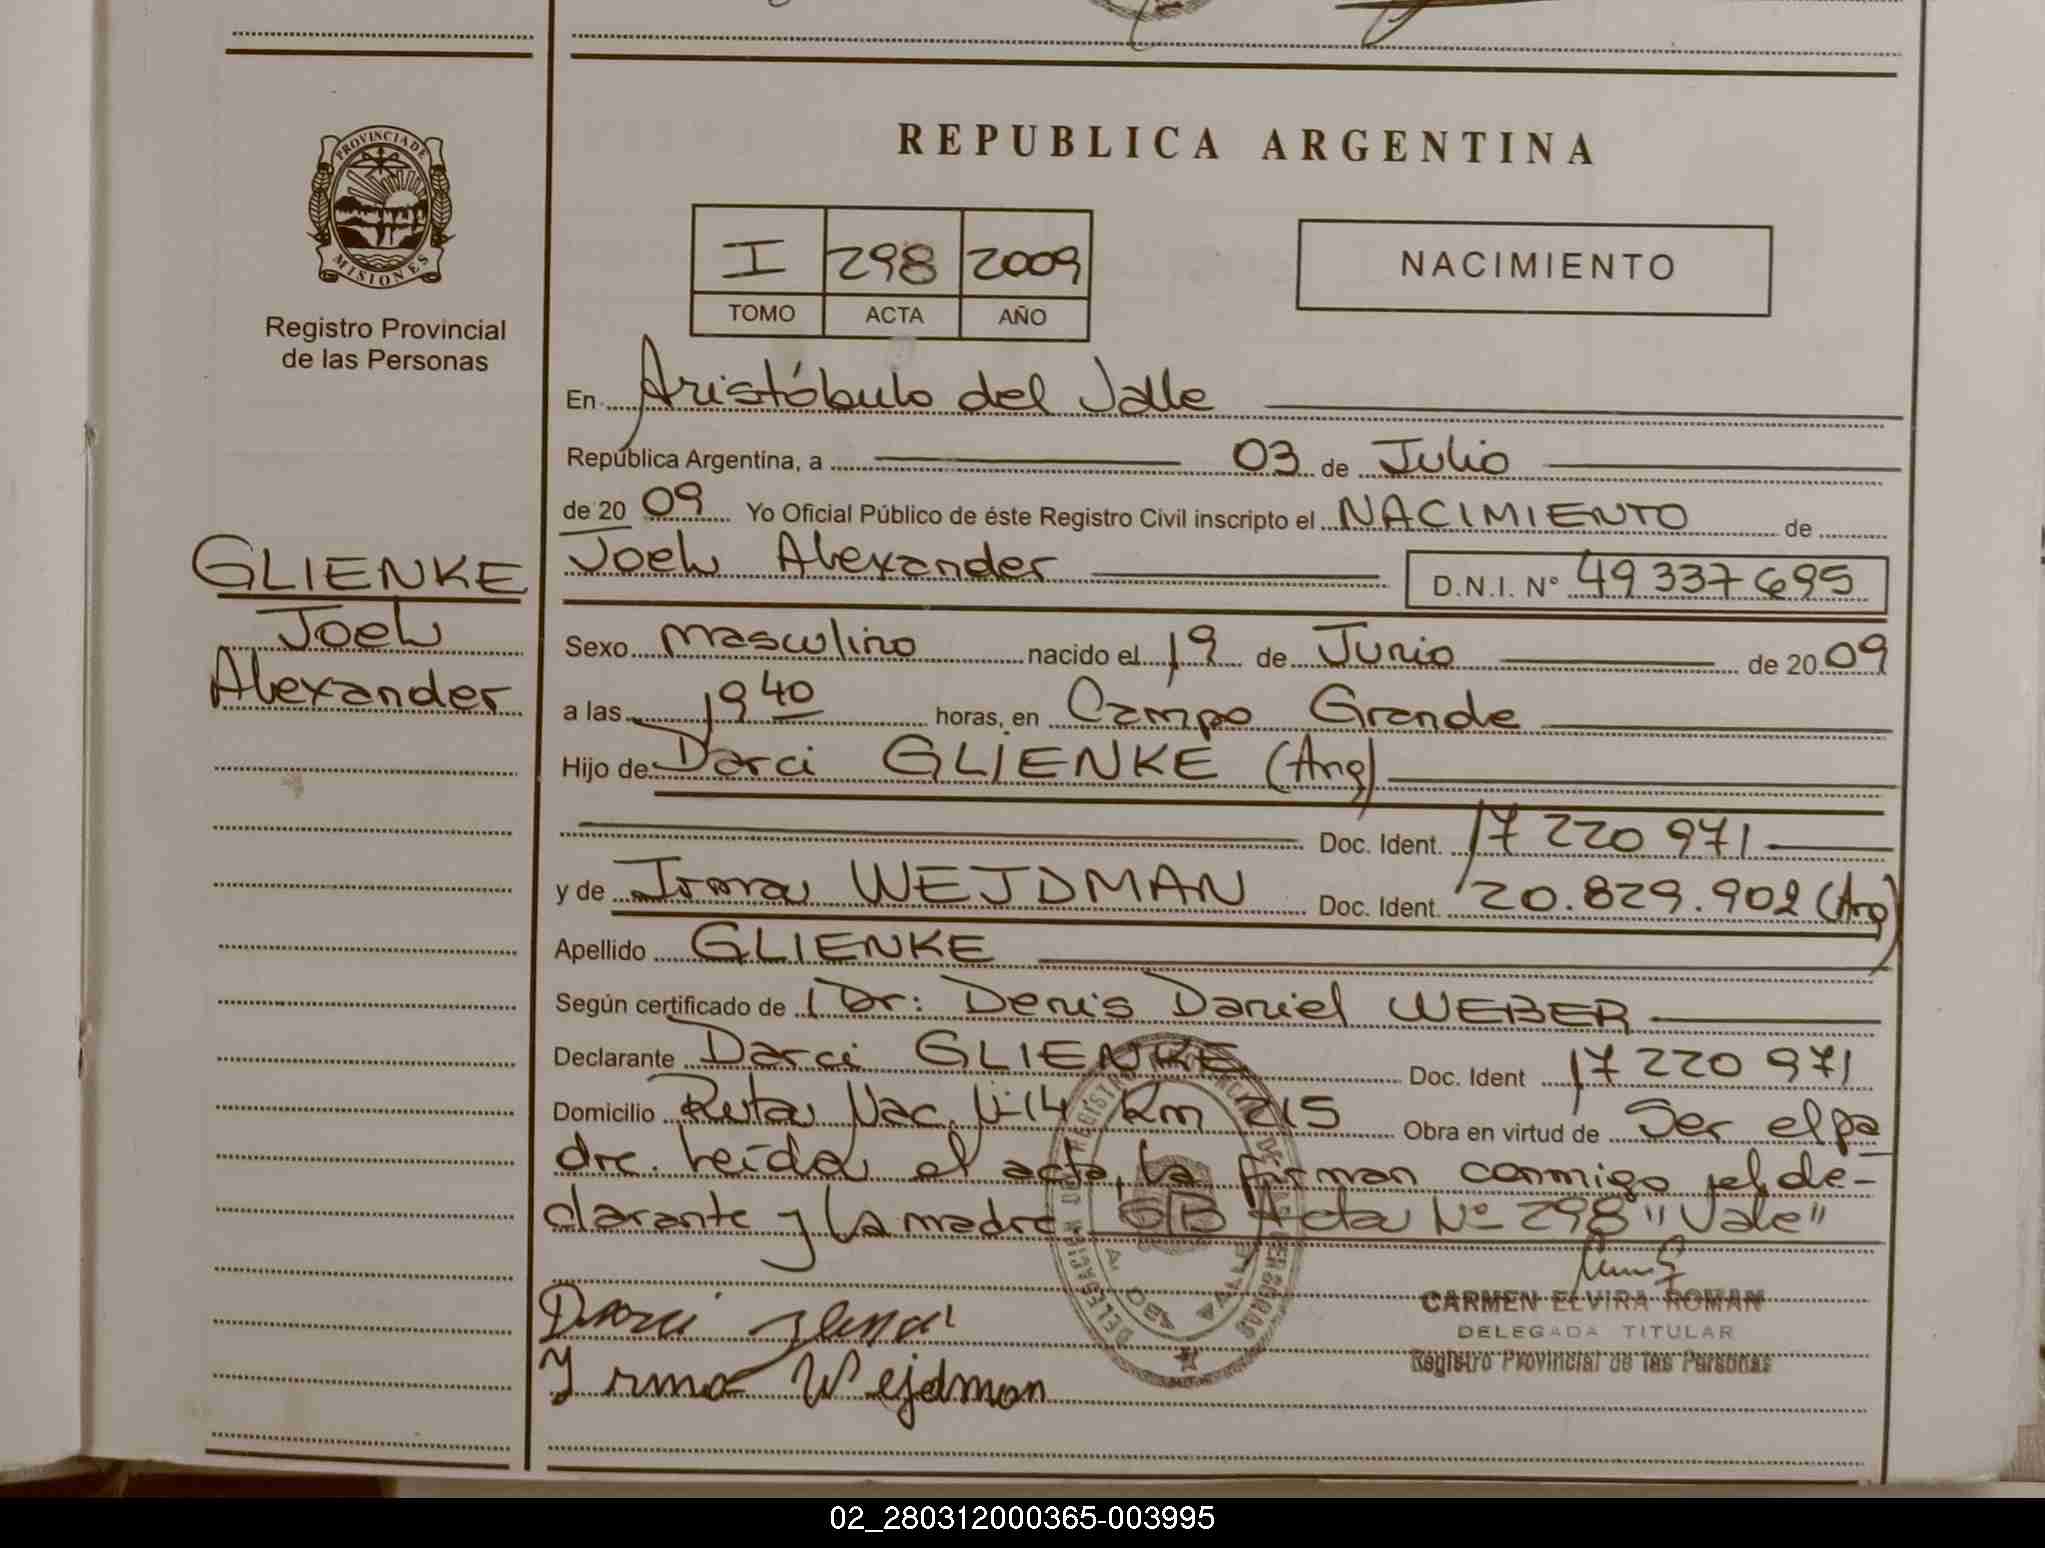 PROVINCIA DE
MISIONES
Registro Provincial
de las Personas
GLIENKE
Joel
Alexander
REPUBLICA ARGENTINA
I 298 2009
TOMO ACTA AÑO
NACIMIENTO
En Aristóbulo del Valle
República Argentina, a 03 de Julio
de 20 09 Yo Oficial Público de éste Registro Civil inscripto el NACIMIENTO de
Joel Alexander D.N.I. Nº 49337695
Sexo masculino nacido el 19 de Junio de 20 09
a las 19 40 horas, en Campo Grande
Hijo de Darci GLIENKE (Arg)
Doc. Ident. 17 220 971
y de Irma WEJDMAN Doc. Ident. 20.829.902 (Arg)
Apellido GLIENKE
Según certificado de Dr: Denis Daniel WEBER
Declarante Darci GLIENKE Doc. Ident 17 220 971
Domicilio Ruta Nac. Nº 14 Km 215 Obra en virtud de Ser el pa
dre. Leída el acta, la firman conmigo el de-
clarante y la madre S/B Acta Nº 298 "Vale"
Darci
Irma Wejdman
CARMEN ELVIRA ROMAN
DELEGADA TITULAR
Registro Provincial de las Personas
02_280312000365-003995